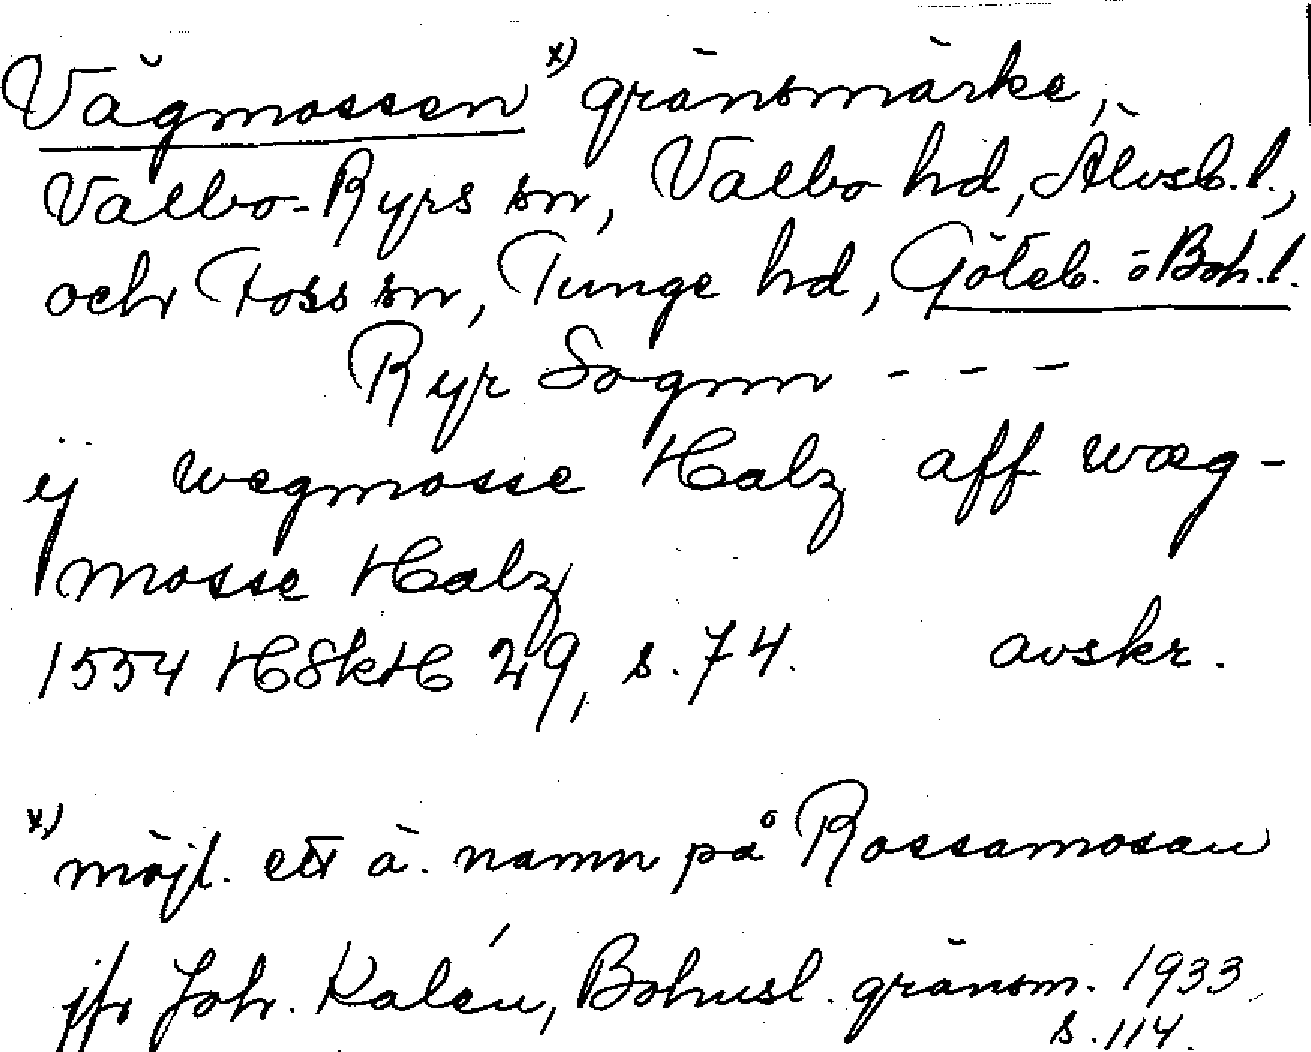 Vägmossen x) gränsmärke,
Valbo-Ryrs sn, Valbo hd, Älvsb. l.,
och Foss sn, Tunge hd, Göteb. o Boh. l.
Ryr Sognn - - -
ij wegmosse Halz aff wæg-
mosse Halz
1554 HSkH 29, s. 74. avskr.
x) möjl. ett ä. namn på Rossamosau
jfr Joh. Kalén, Bohusl. gränsm. 1933,
s. 114.